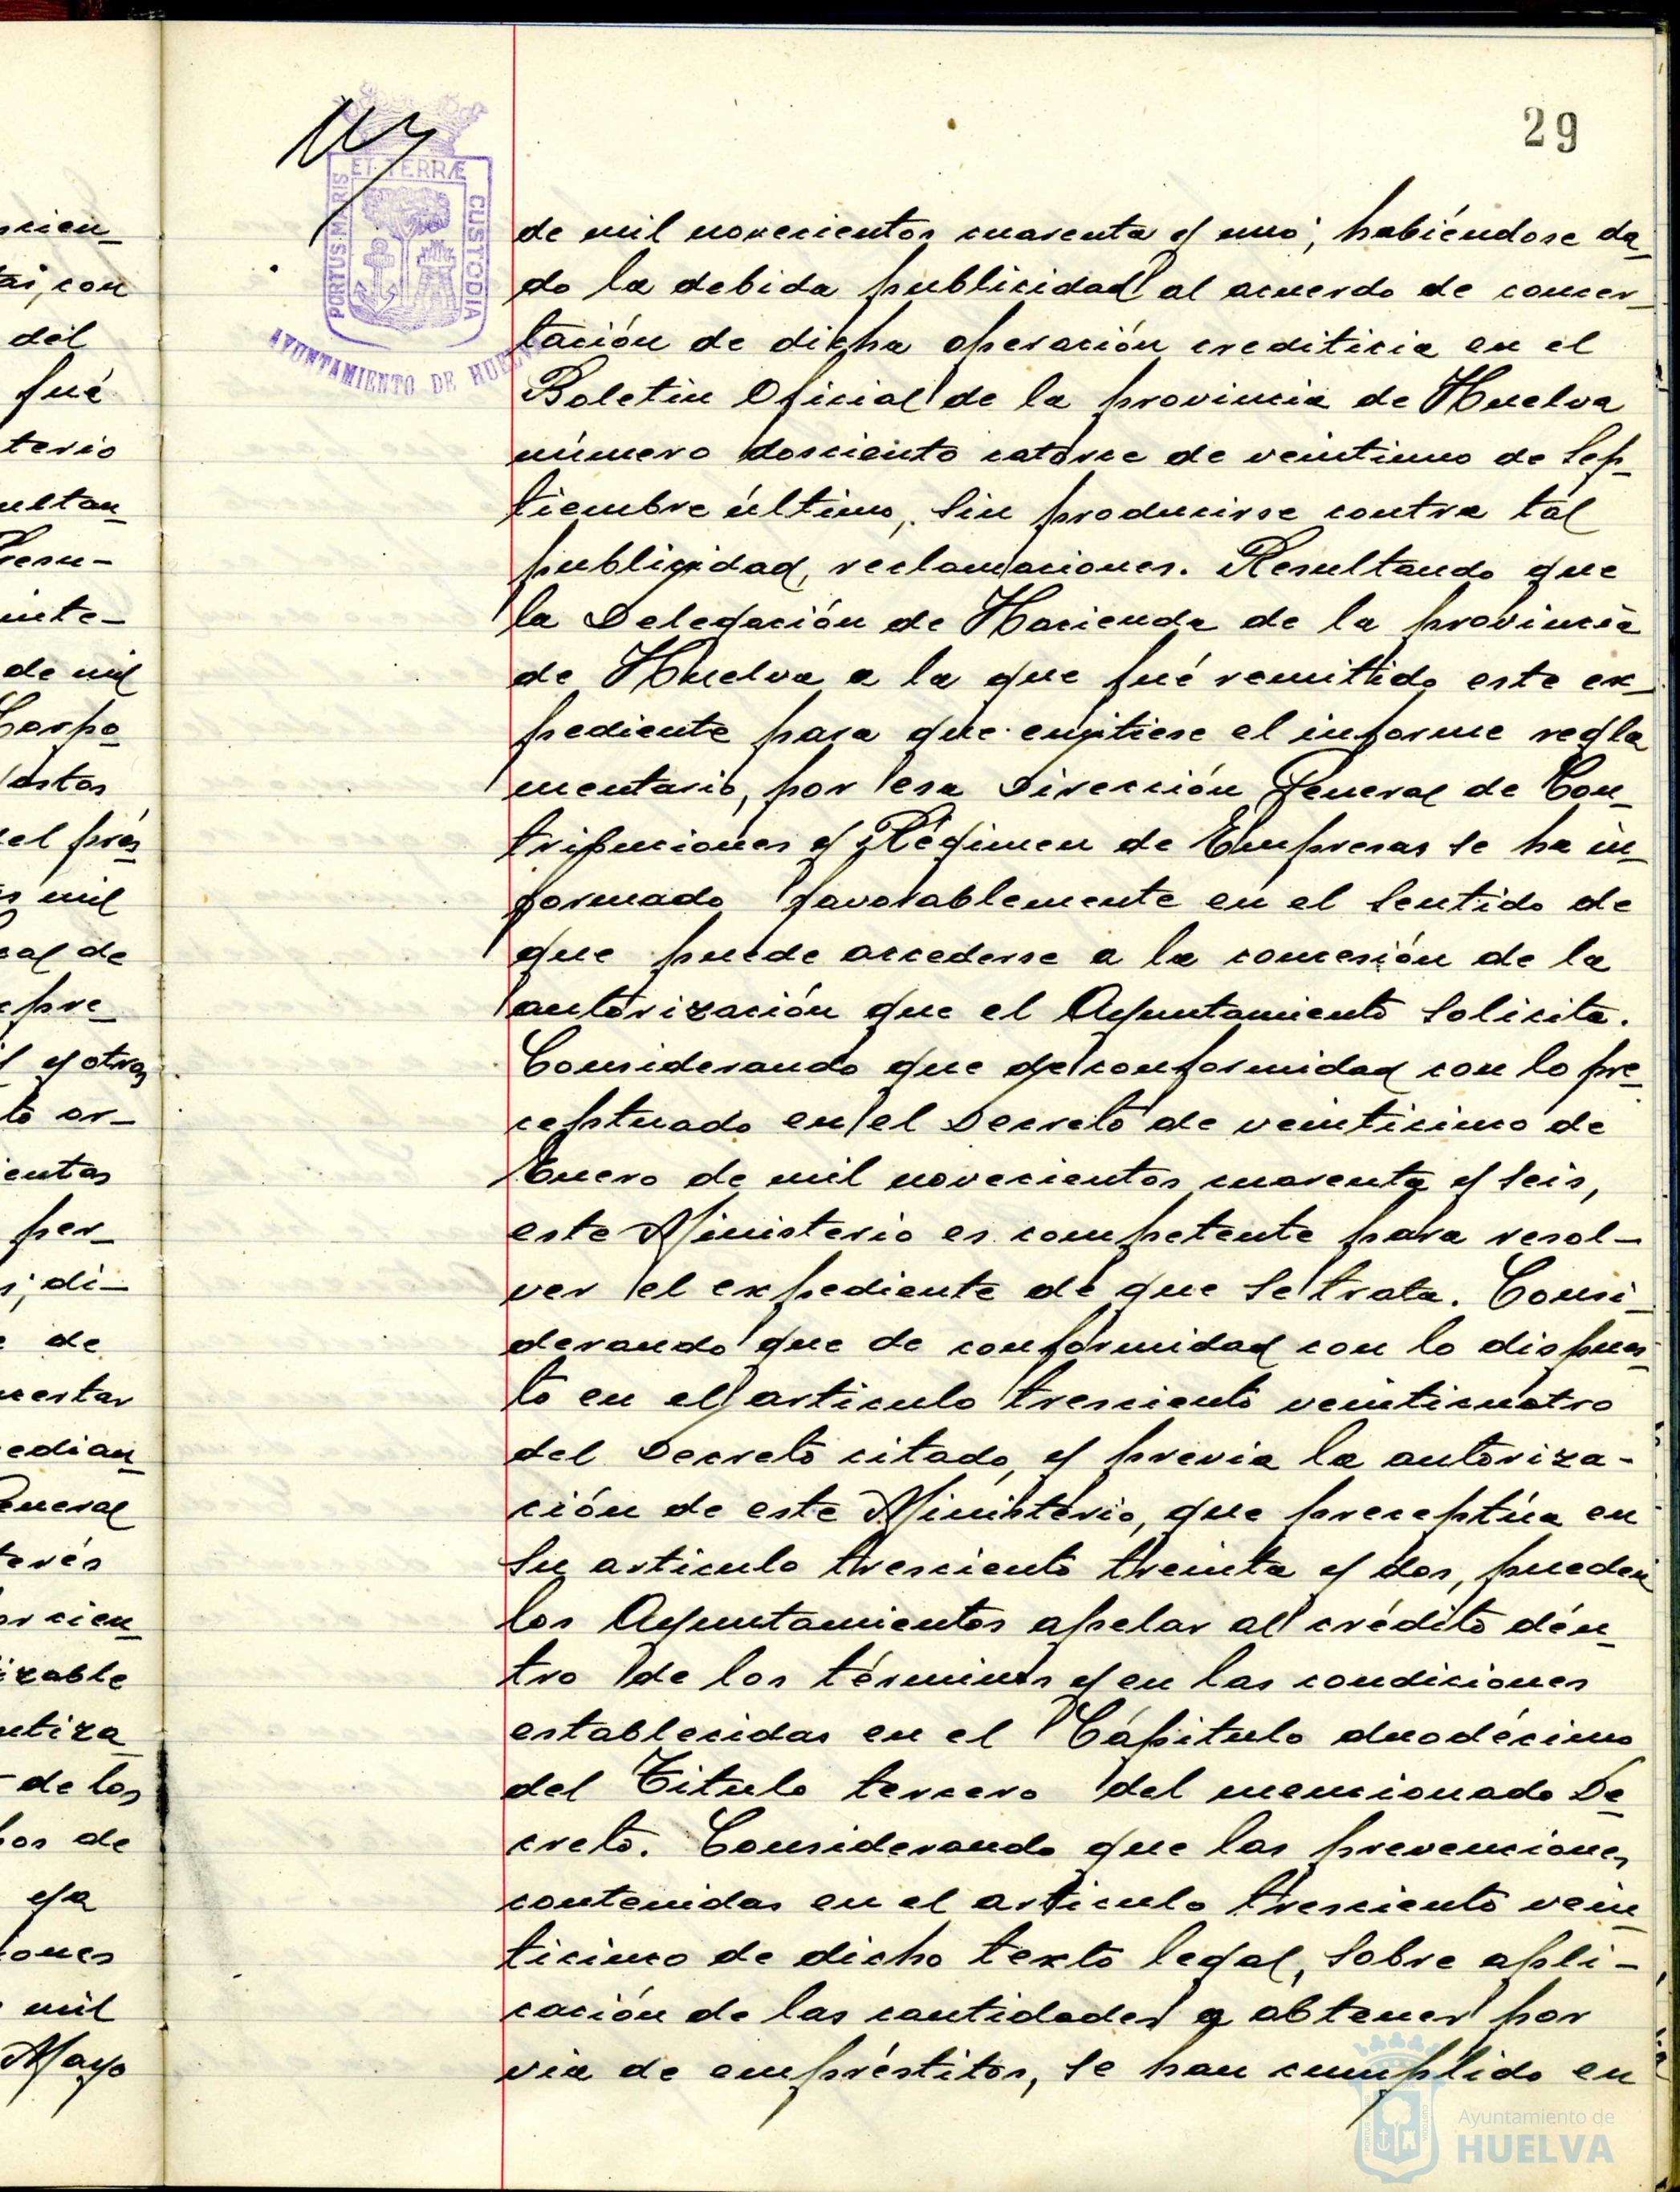 29
ET TERRÆ
PORTUS MARIS
CUSTODIA
AYUNTAMIENTO DE HUELVA
cien_
con
del
fué
terio
ultan_
Presu-
inte-
de mil
Corpo_
estos
el pres_
mil
de
pre_
y otros
to or-
ientas
per_
di-
de
certar
edian_
General
terés
or cien_
izable
ntiza_
de los
de
ya
iones
mil
Mayo
de mil novecientos cuarenta y uno; habiéndose da_
do la debida publicidad al acuerdo de concer_
tación de dicha operación crediticia en el
Boletin Oficial de la provincia de Huelva
número dosciento catorce de veintiuno de Sep_
tiembre último, sin producirse contra tal
publicidad, reclamaciones. Resultando que
la Delegación de Hacienda de la provincia
de Huelva a la que fué remitido este ex_
pediente para que emitiese el informe regla
mentario, por esa Dirección General de Con_
tribuciones y Régimen de Empresas se ha in_
formado favorablemente en el sentido de
que puede accederse a la concesión de la
autorización que el Ayuntamiento solicita.
Considerando que de conformidad con lo pre_
ceptuado en el Decreto de veinticinco de
Enero de mil novecientos cuarenta y seis,
este Ministerio es competente para resol-
ver el expediente de que se trata. Consi_
derando que de conformidad con lo dispues_
to en el articulo tresciento veinticuatro
del Decreto citado, y previa la autoriza-
ción de este Ministerio, que preceptúa en
su articulo tresciento treinta y dos, pueden
los Ayuntamientos apelar al crédito dén_
tro de los términos y en las condiciones
establecidas en el Capitulo duodécimo
del Titulo tercero del mencionado De_
creto. Considerando que las prevenciones
contenidas en el articulo tresciento vein_
ticinco de dicho texto legal, sobre apli-
cación de las cantidades a obtener por
via de empréstitos, se han cumplido en
Ayuntamiento de
HUELVA